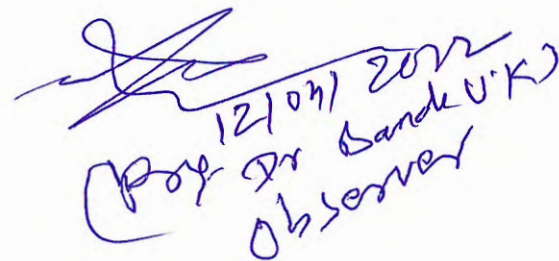 12/07/2022
(Prof Dr Bande V.K)
Observer